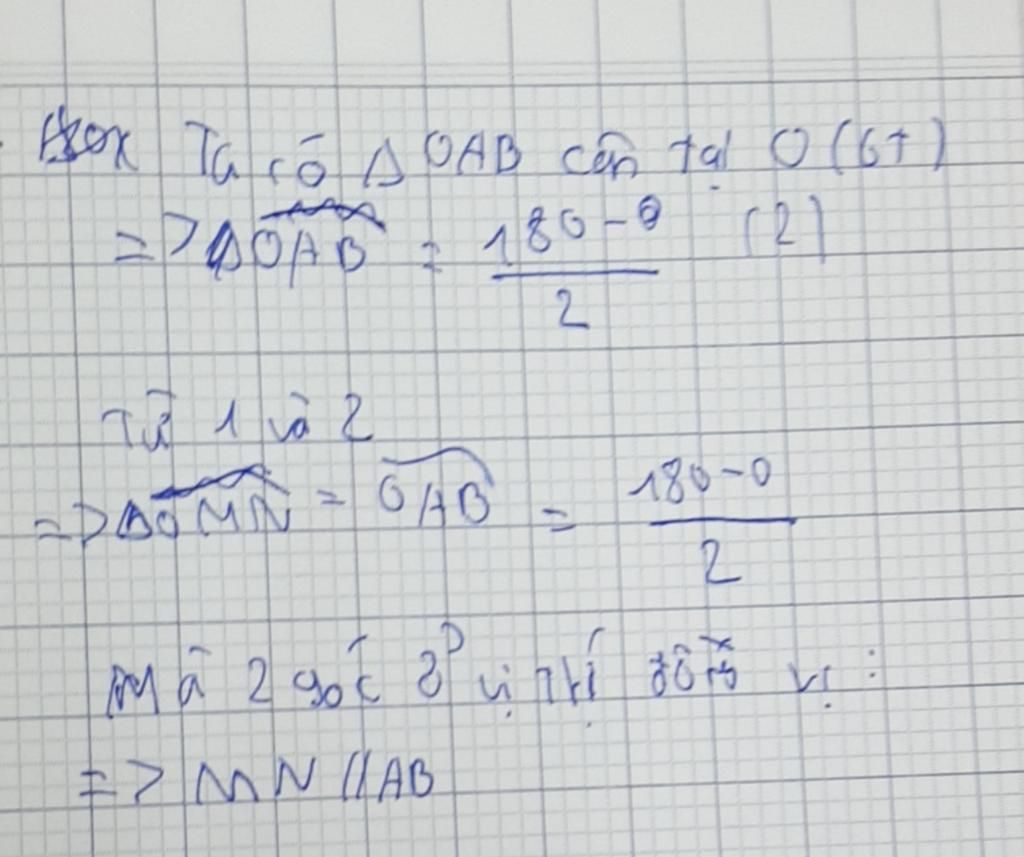 Ta có Δ OAB cân tại O (GT)
=> ΔOAB = 180-0 / 2 (2)
Từ 1 và 2
=> ΔOMN = OAB = 180-0 / 2
Mà 2 góc ở vị trí đồng vị :
=> MN // AB